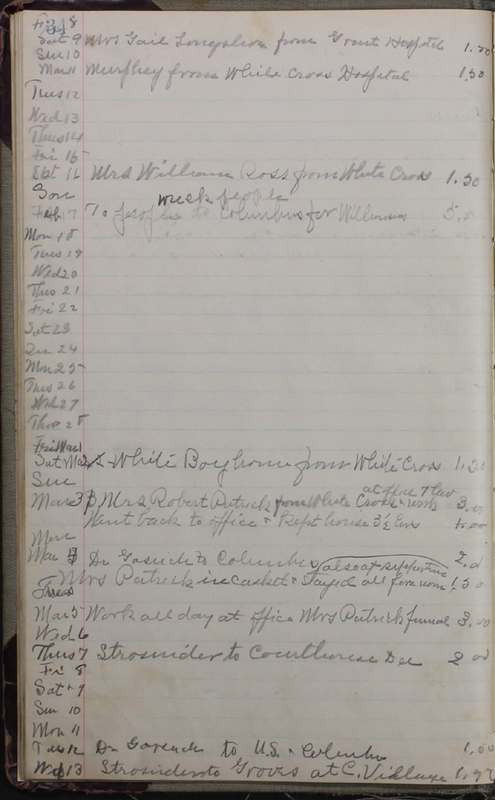 Fri 8
Sat 9 Mrs Gail from Grant Hospital 1.50
Sun 10
Mon 11 Murphey from White Cross Hospital 1.50
Tues 12
Wed 13
Thus 14
Fri 15
Sat 16 Mrs William Ross from White Cross 1.50
Sun wreck people
Feb 17 To people to Columbus for 5.0
Mon 18
Tues 19
Wed 20
Thus 21
Fri 22
Sat 23
Sun 24
Mon 25
Tues 26
Wed 27
Thus 28
Fri Mar 1
Sat Mar 2 White Boy home from White Cross 1.50
Sun at office 7 hrs
Mar 3 Mrs Robert Patrick from White Cross & work 3.00
Went back to office & Kept house 3½ hrs
Mon
Mar 4 Dr to Columbus also at 2.0
Tues Mrs Patrick in casket & Stayed all forenoon 1.50
Mar 5 Work all day at office Mrs Patrick funeral 3.00
Wed 6
Thus 7 Strosnider to Courthouse 2 00
Fri 8
Sat 9
Sun 10
Mon 11
Tues 12 Dr to U.S. & Columbus 1.00
Wed 13 Strosnider to Groves at C. Village